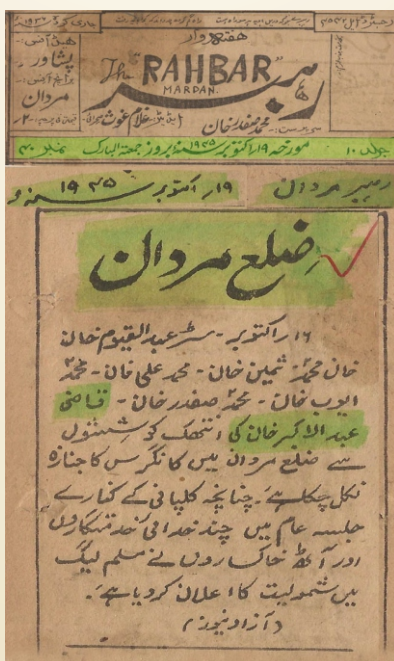 ہفتہ وار
ہیڈ آفس
پشاور
برانچ آفس
مردان
The "RAHBAR"
MARDAN.
رہبر
محمد صفدر خان
ایڈیٹر غلام غوث
جلد ۱۰ مورخہ ۱۹ اکتوبر ۱۹۴۵ سنہ بروز جمعۃ المبارک نمبر ۴۰
رہبر مردان ۱۹ر اکتوبر سنہ ۱۹۴۵ء
ضلع مردان
۱۶ر اکتوبر - مسٹر عبدالقیوم خان
خان محمد ثمین خان - محمد علی خان - محمد
ایوب خان - محمد صفدر خان - قاضی
عبدالاکبر خان کی انتھک کوششوں
سے ضلع مردان میں کانگرس کا جنازہ
نکل چکا ہے۔ چنانچہ کلپانی کے کنارے
جلسہ عام میں چند خدائی خدمتگاروں
اور آٹھ خاکساروں نے مسلم لیگ
میں شمولیت کا اعلان کر دیا ہے۔
(آزاد نیوز)